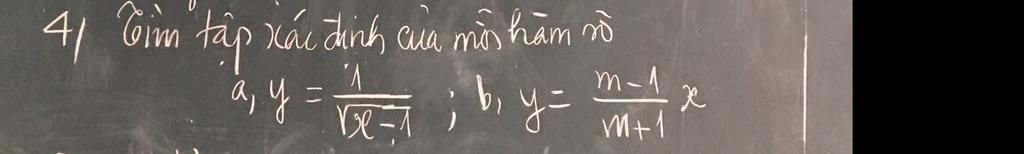 4/ Tìm tập xác định của mỗi hàm số
a, y = 1/√(x-1) ; b, y = (m-1)/(m+1) x